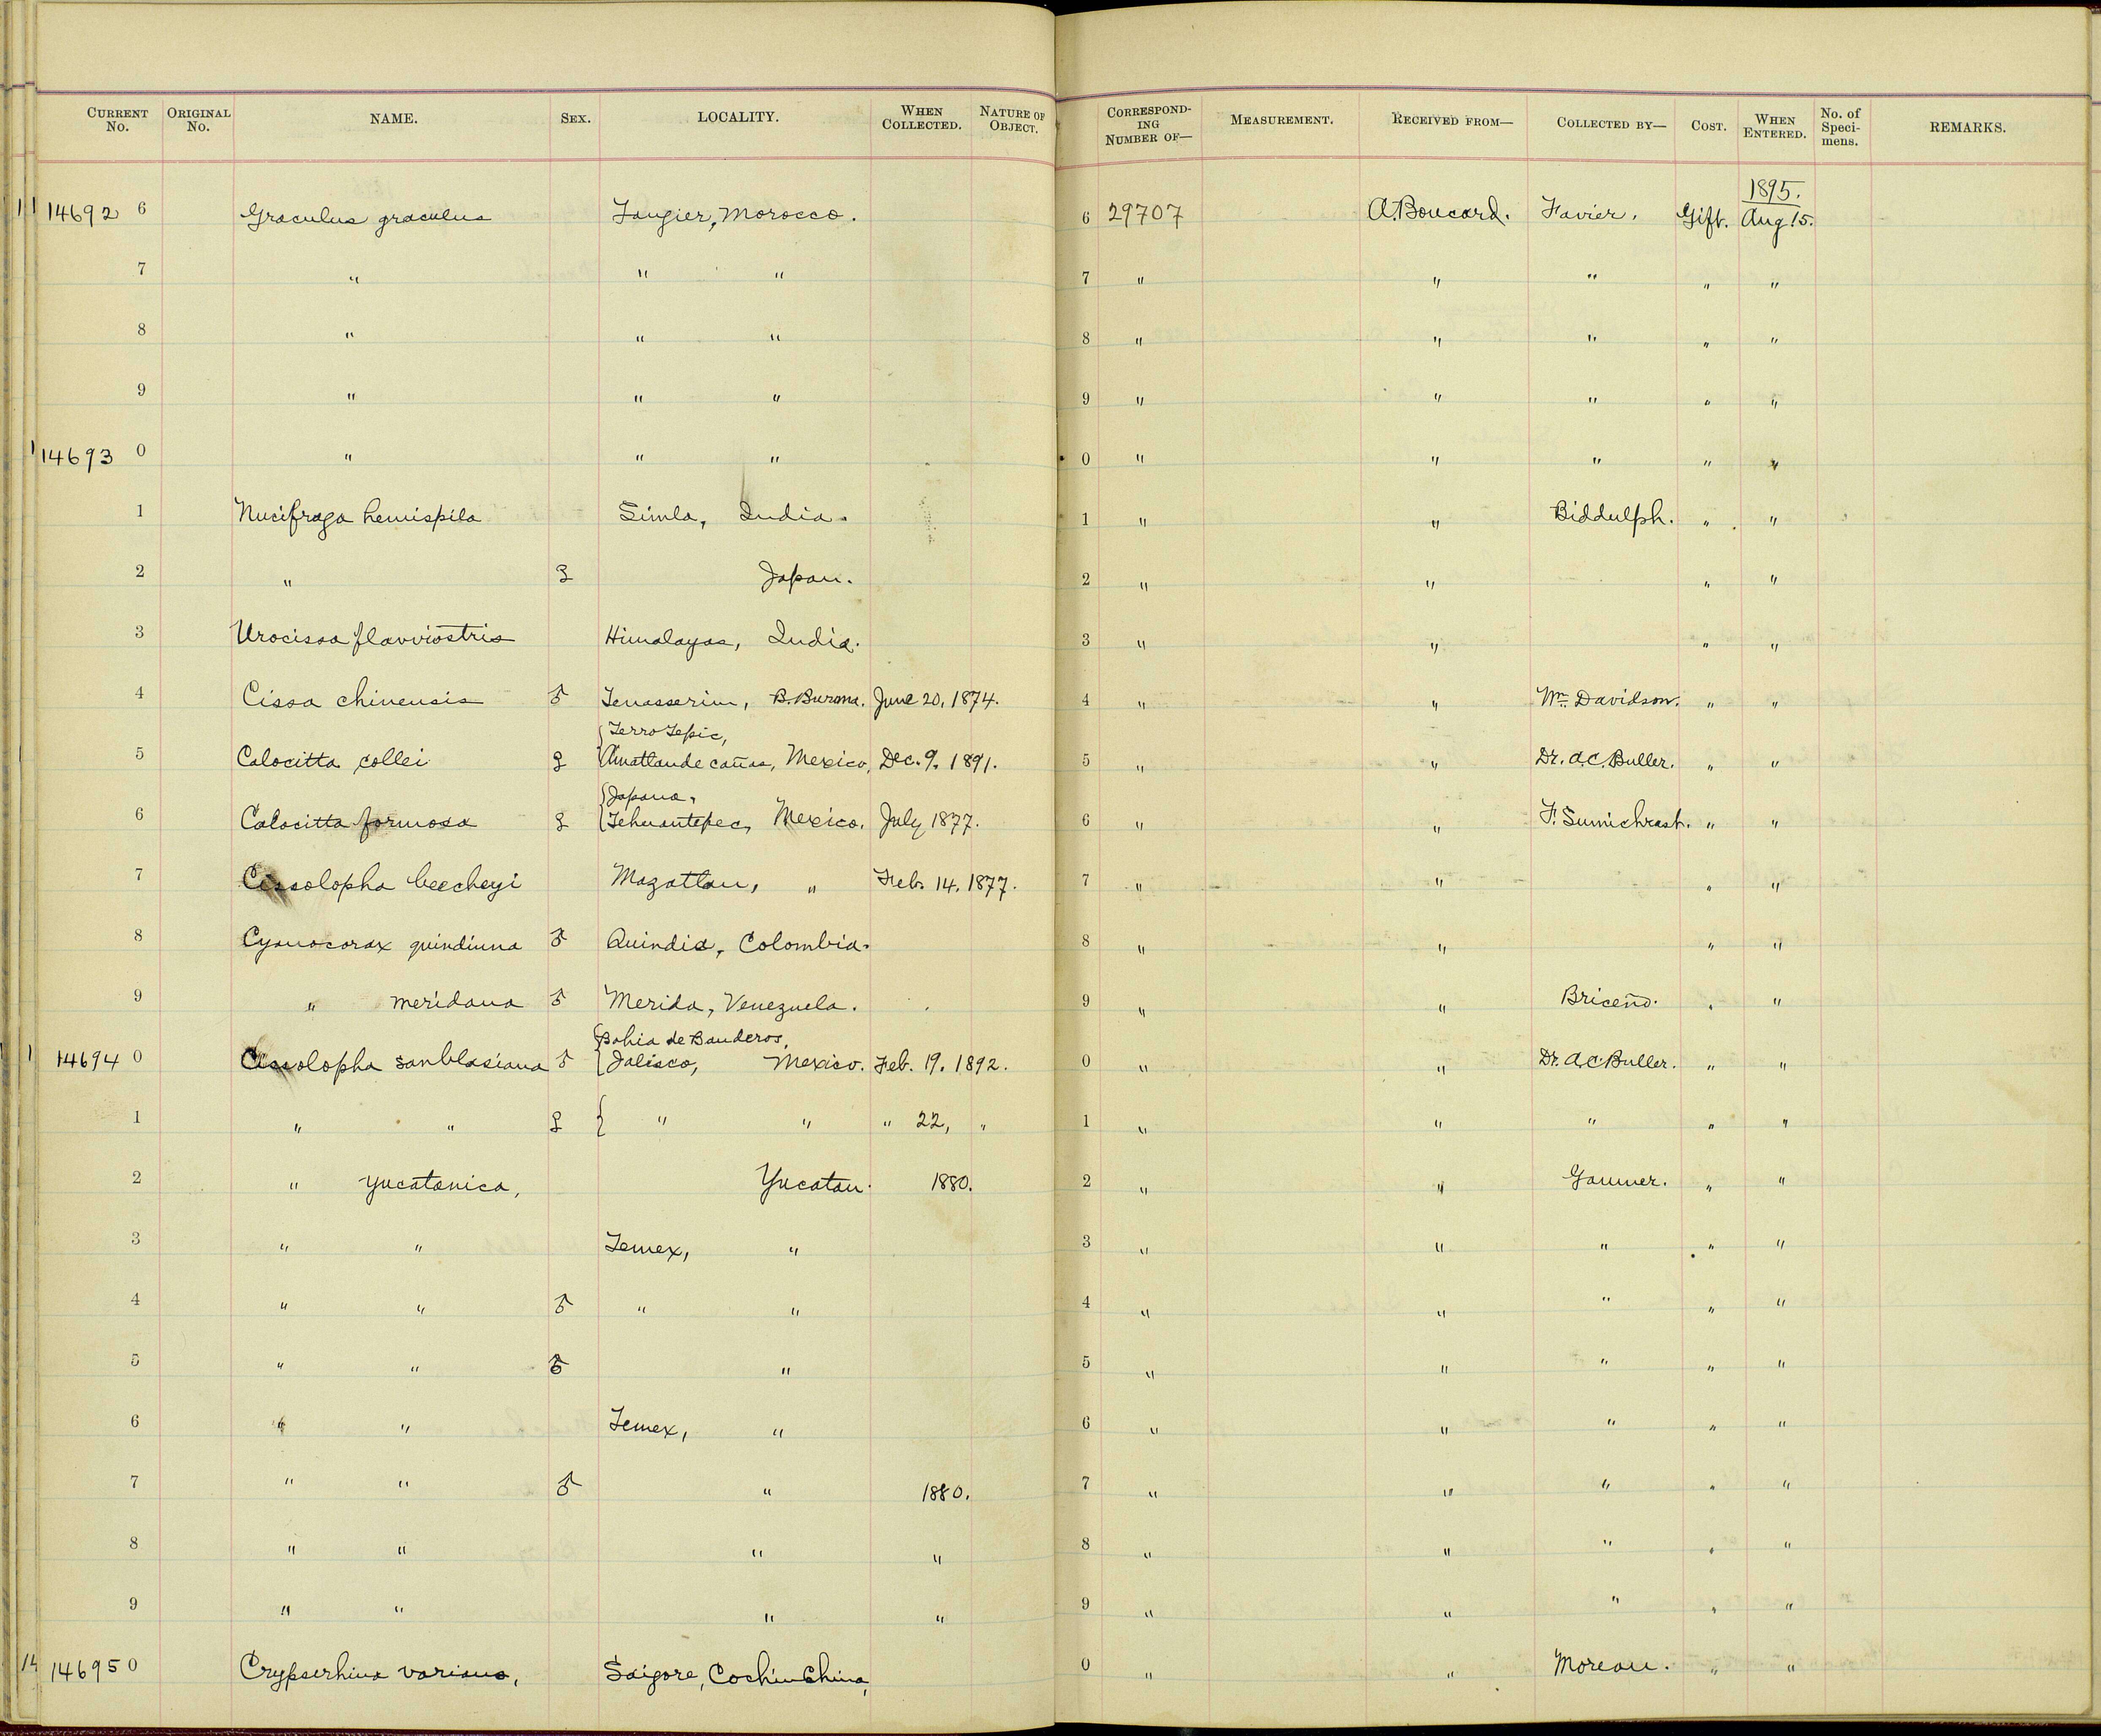 CURRENT No. ORIGINAL No. NAME. SEX. LOCALITY. WHEN COLLECTED. NATURE OF OBJECT. CORRESPONDING NUMBER OF— MEASUREMENT. RECEIVED FROM— COLLECTED BY— COST. WHEN ENTERED. No. of Specimens. REMARKS.
1895.
14692 6 Graculus graculus Tangier, Morocco. 6 29707 A. Boucard. Favier. Gift. Aug 15.
7 " " " 7 " " " " "
8 " " " 8 " " " " "
9 " " " 9 " " " " "
14693 0 " " " 0 " " " " "
1 Nucifraga hemispila Simla, India. 1 " " Biddulph. " "
2 " ♀ Japan. 2 " " " "
3 Urocissa flavviostris Himalayas, India. 3 " " " "
4 Cissa chinensis ♂ Tenasserim, B. Burma. June 20, 1874. 4 " " Wm. Davidson. " "
{Terro Tepic,
5 Calocitta collei ♀ Amatlande cañas, Mexico, Dec. 9. 1891. 5 " " Dr. A.C. Buller. " "
{Japana,
6 Calocitta formosa ♀ {Tehuantepec, Mexico. July 1877. 6 " " F. Sumichrast. " "
7 Cissolopha beecheyi Mazatlan, " Feb. 14. 1877. 7 " " " "
8 Cyanocorax quindiuna ♂ Quindia, Colombia. 8 " " " "
9 " meridana ♂ Merida, Venezuela. 9 " " Briceño. " "
{Bahia de Banderos,
14694 0 Cissolopha sanblasiana ♂ {Jalisco, Mexico. Feb. 19. 1892. 0 " " Dr. A.C. Buller. " "
1 " " ♀ { " " " 22, " 1 " " " " "
2 " yucatanica, Yucatan. 1880. 2 " " Gaumer. " "
3 " " Temex, " 3 " " " " "
4 " " ♂ " " 4 " " " " "
5 " " ♂ " 5 " " " " "
6 " " Temex, " 6 " " " " "
7 " " ♂ " 1880. 7 " " " " "
8 " " " " 8 " " " " "
9 " " " " 9 " " " " "
14695 0 Crypserhina varians, Saigore, Cochin China, 0 " " Moreau. " "